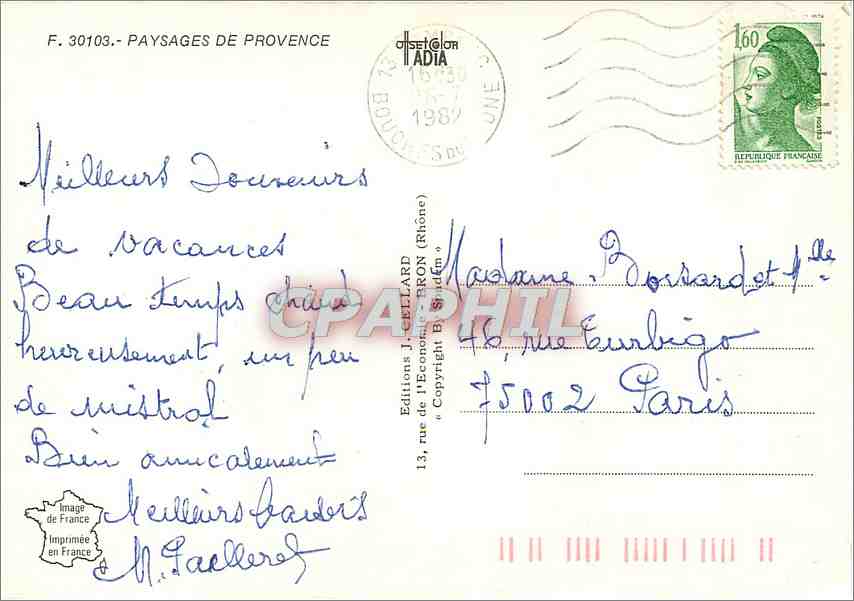 F. 30103.- PAYSAGES DE PROVENCE
offset color
ADIA
16H30
1982
BOUCHES DU
1,60
POSTES
REPUBLIQUE FRANÇAISE
Meilleurs Souvenirs
de vacances
Beau temps chaud
heureusement, un peu
de mistral
Bien amicalement
Meilleurs
Image
de France
Imprimée
en France
Editions J. CELLARD
13, rue de l'Economie - BRON (Rhône)
« Copyright By Spadem »
Madame et Mlle
76, rue Turbigo
75002 Paris
CPAPHIL